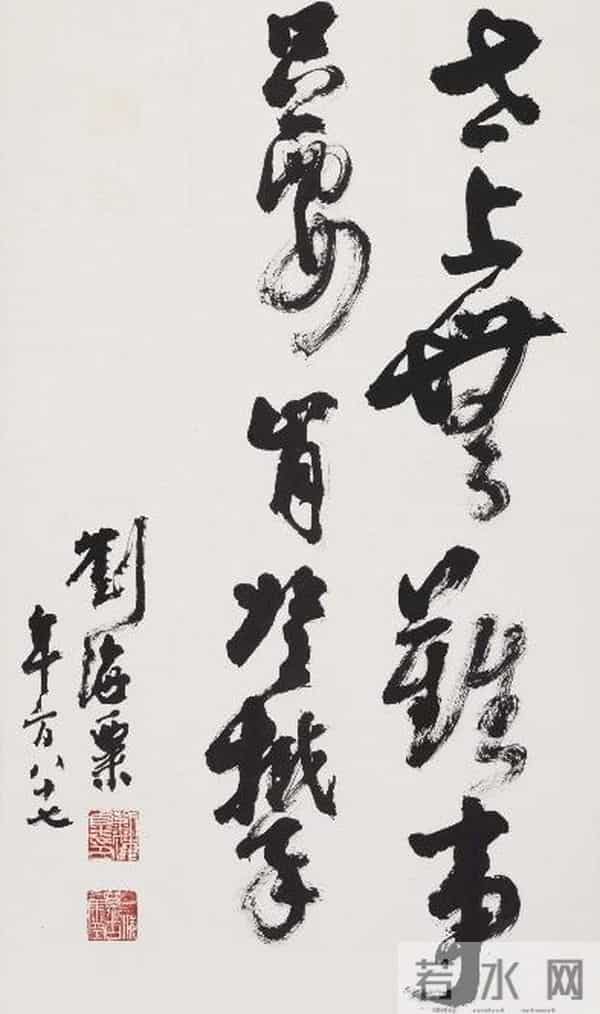 世上無難事
只要肯登攀
劉海粟
年方八十七
若水网